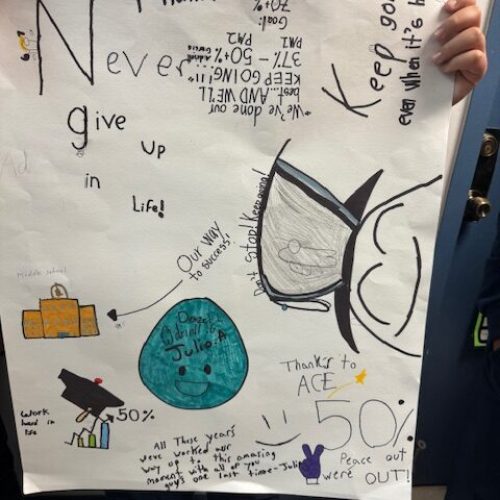 Never
give
up
in
Life!
Goal:
70+%
37% - 50+%
PM1
PM2
KEEP GOING!
best...AND WE'LL
*We've done our
Keep go
even when it's h
Don't Stop! Keep going!
Our way
to success!
Middle school
Julio.A
Work
hard in
life
50%
Thanks to
ACE
50%
Peace out
were OUT!
All These years
we've worked our
way up to this amazing
moment with all of you
guys one last time -Julio